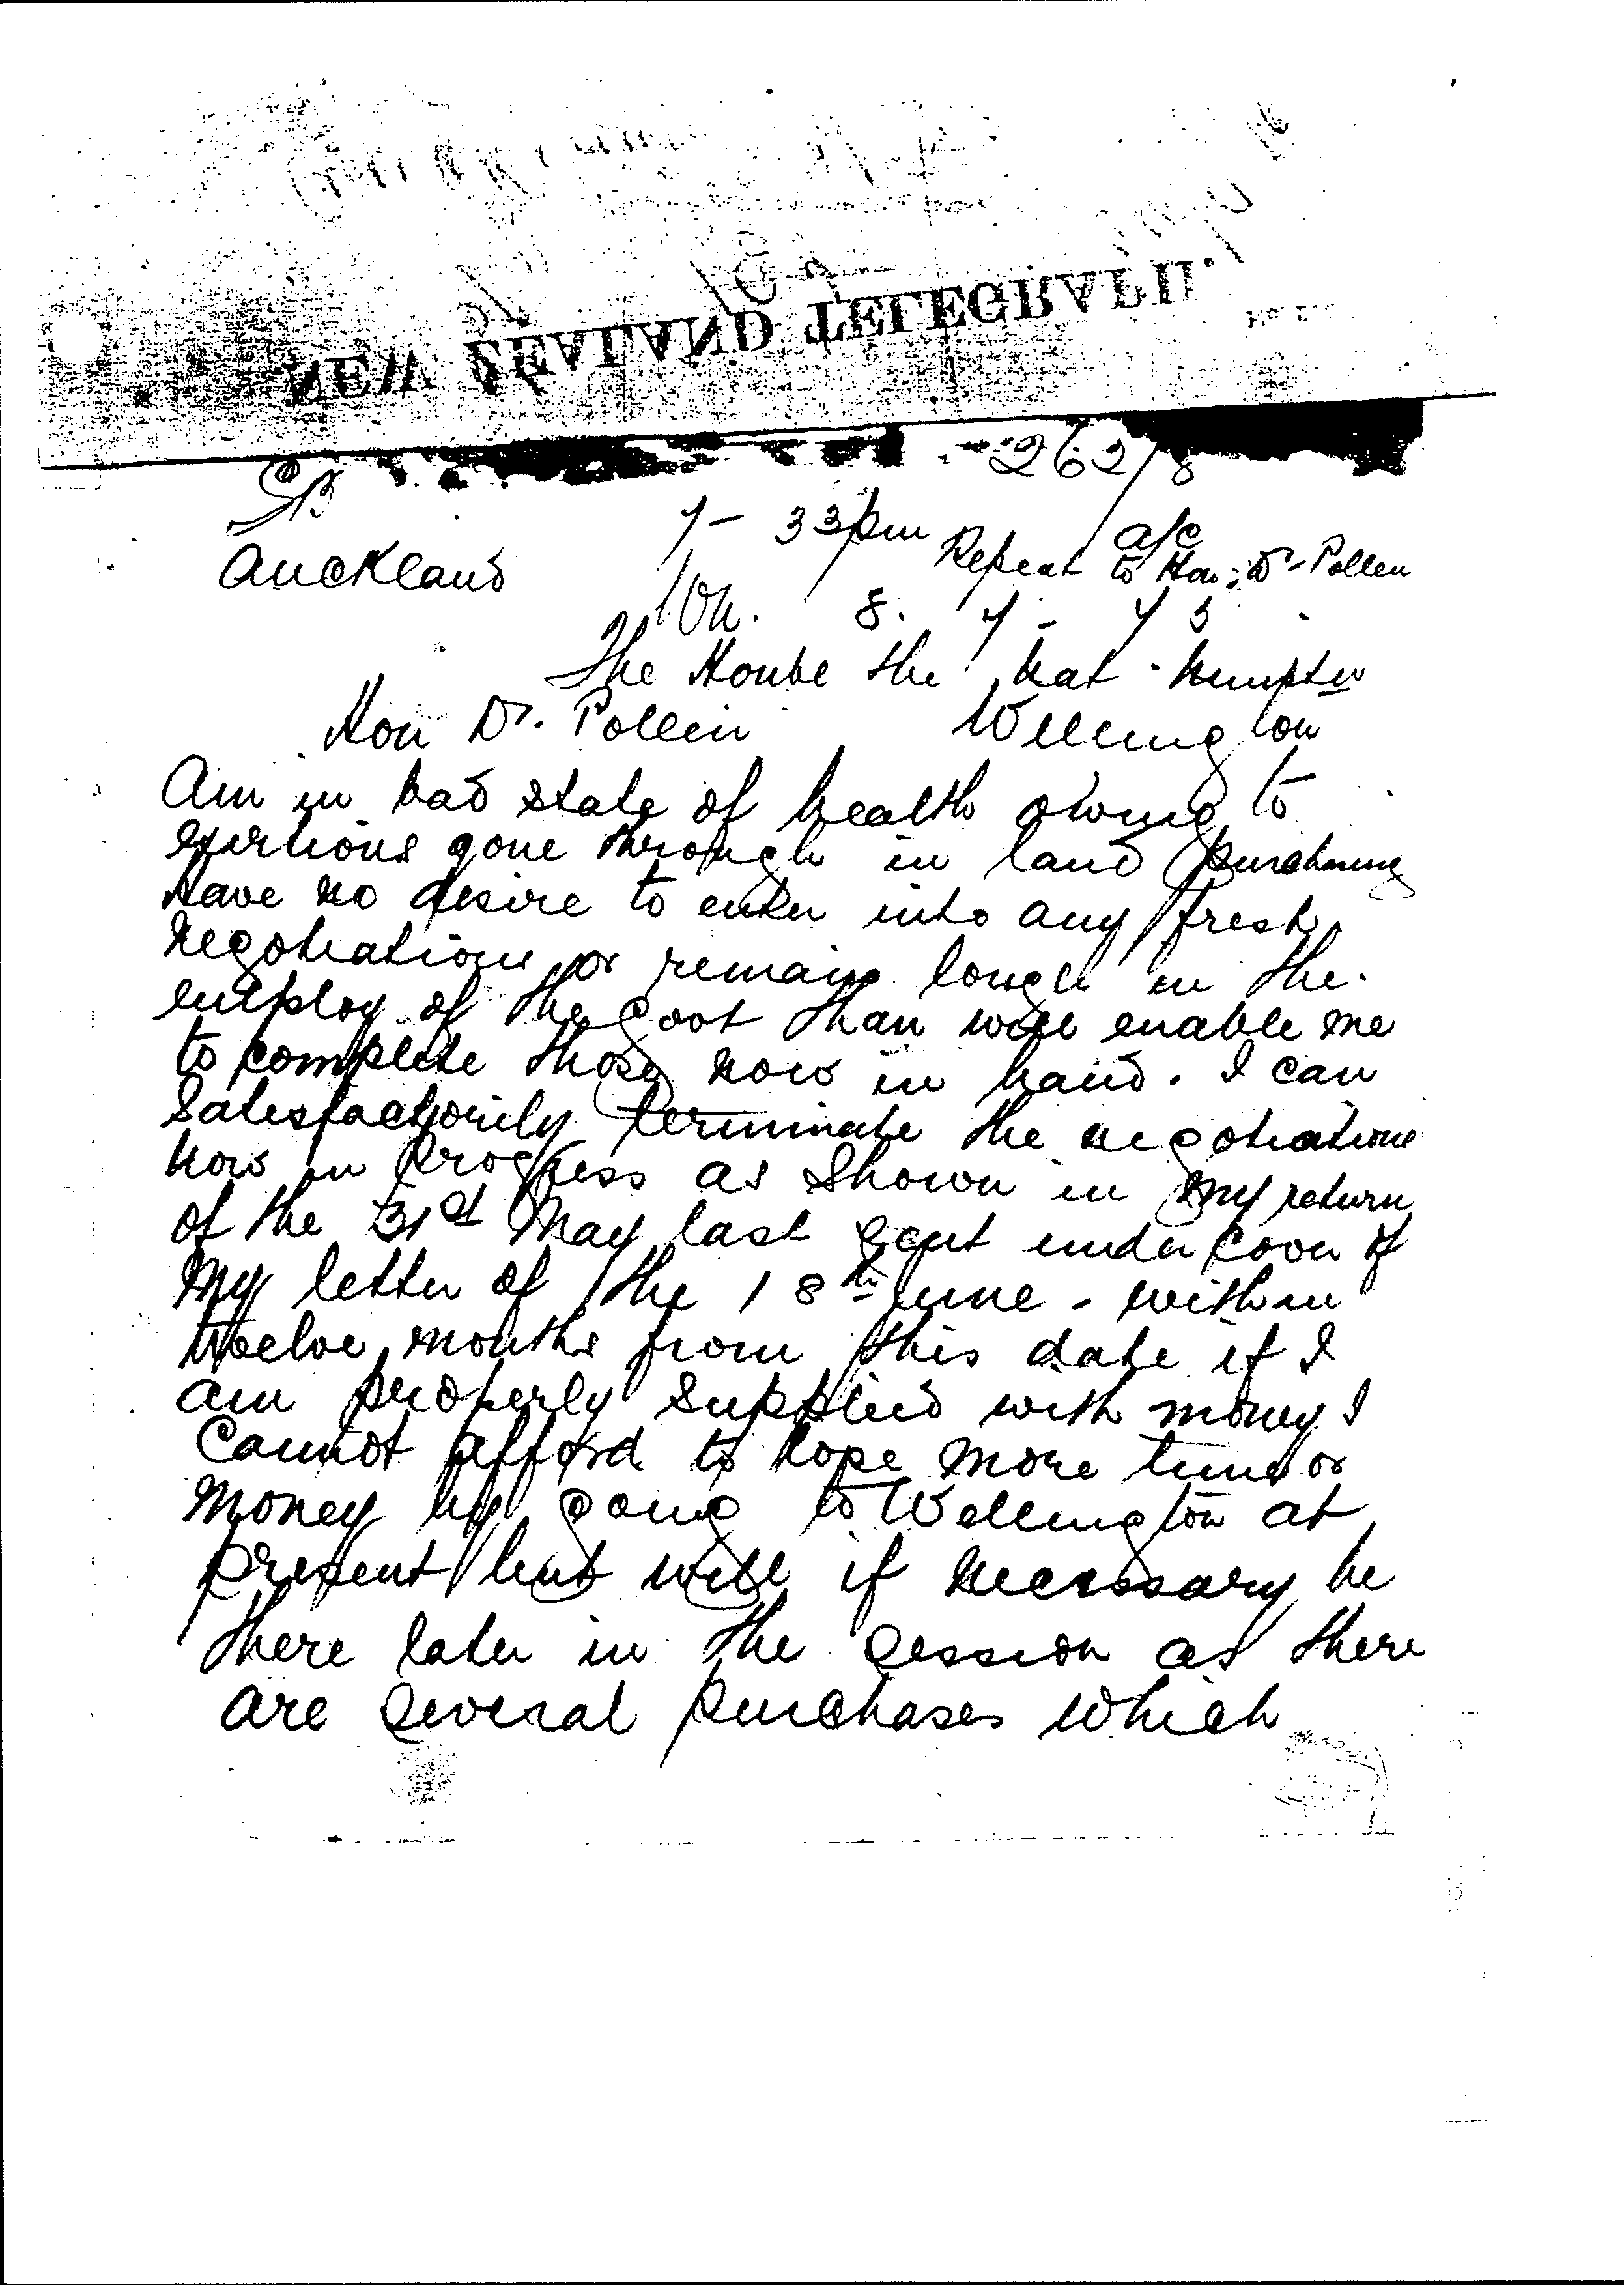 NEW ZEALAND TELEGRAPH.
262/8
7-33pm a/c
Auckland Repeat to Hon: Dr Pollen
8. 7 - 75
The Honble the Nat Minister
Hon Dr. Pollen Wellington
Am in bad state of health owing to
exertions gone through in land purchasing
have no desire to enter into any fresh
negotiations or remain longer in the
employ of the Govt than will enable me
to complete those now in hand. I can
Satisfactorily terminate the negotiations
now in progress as shown in my return
of the 31st May last sent under cover of
my letter of the 18th June - within
twelve months from this date if I
am properly supplied with money I
Cannot afford to lose more time or
money by going to Wellington at
present but will if necessary be
there later in the session as there
are several purchases which